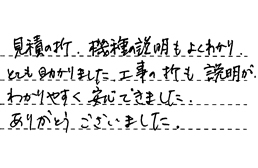 見積の折、機種の説明もよくわかり、
とても助かりました。工事の折も説明が
わかりやすく安心できました。
ありがとうございました。